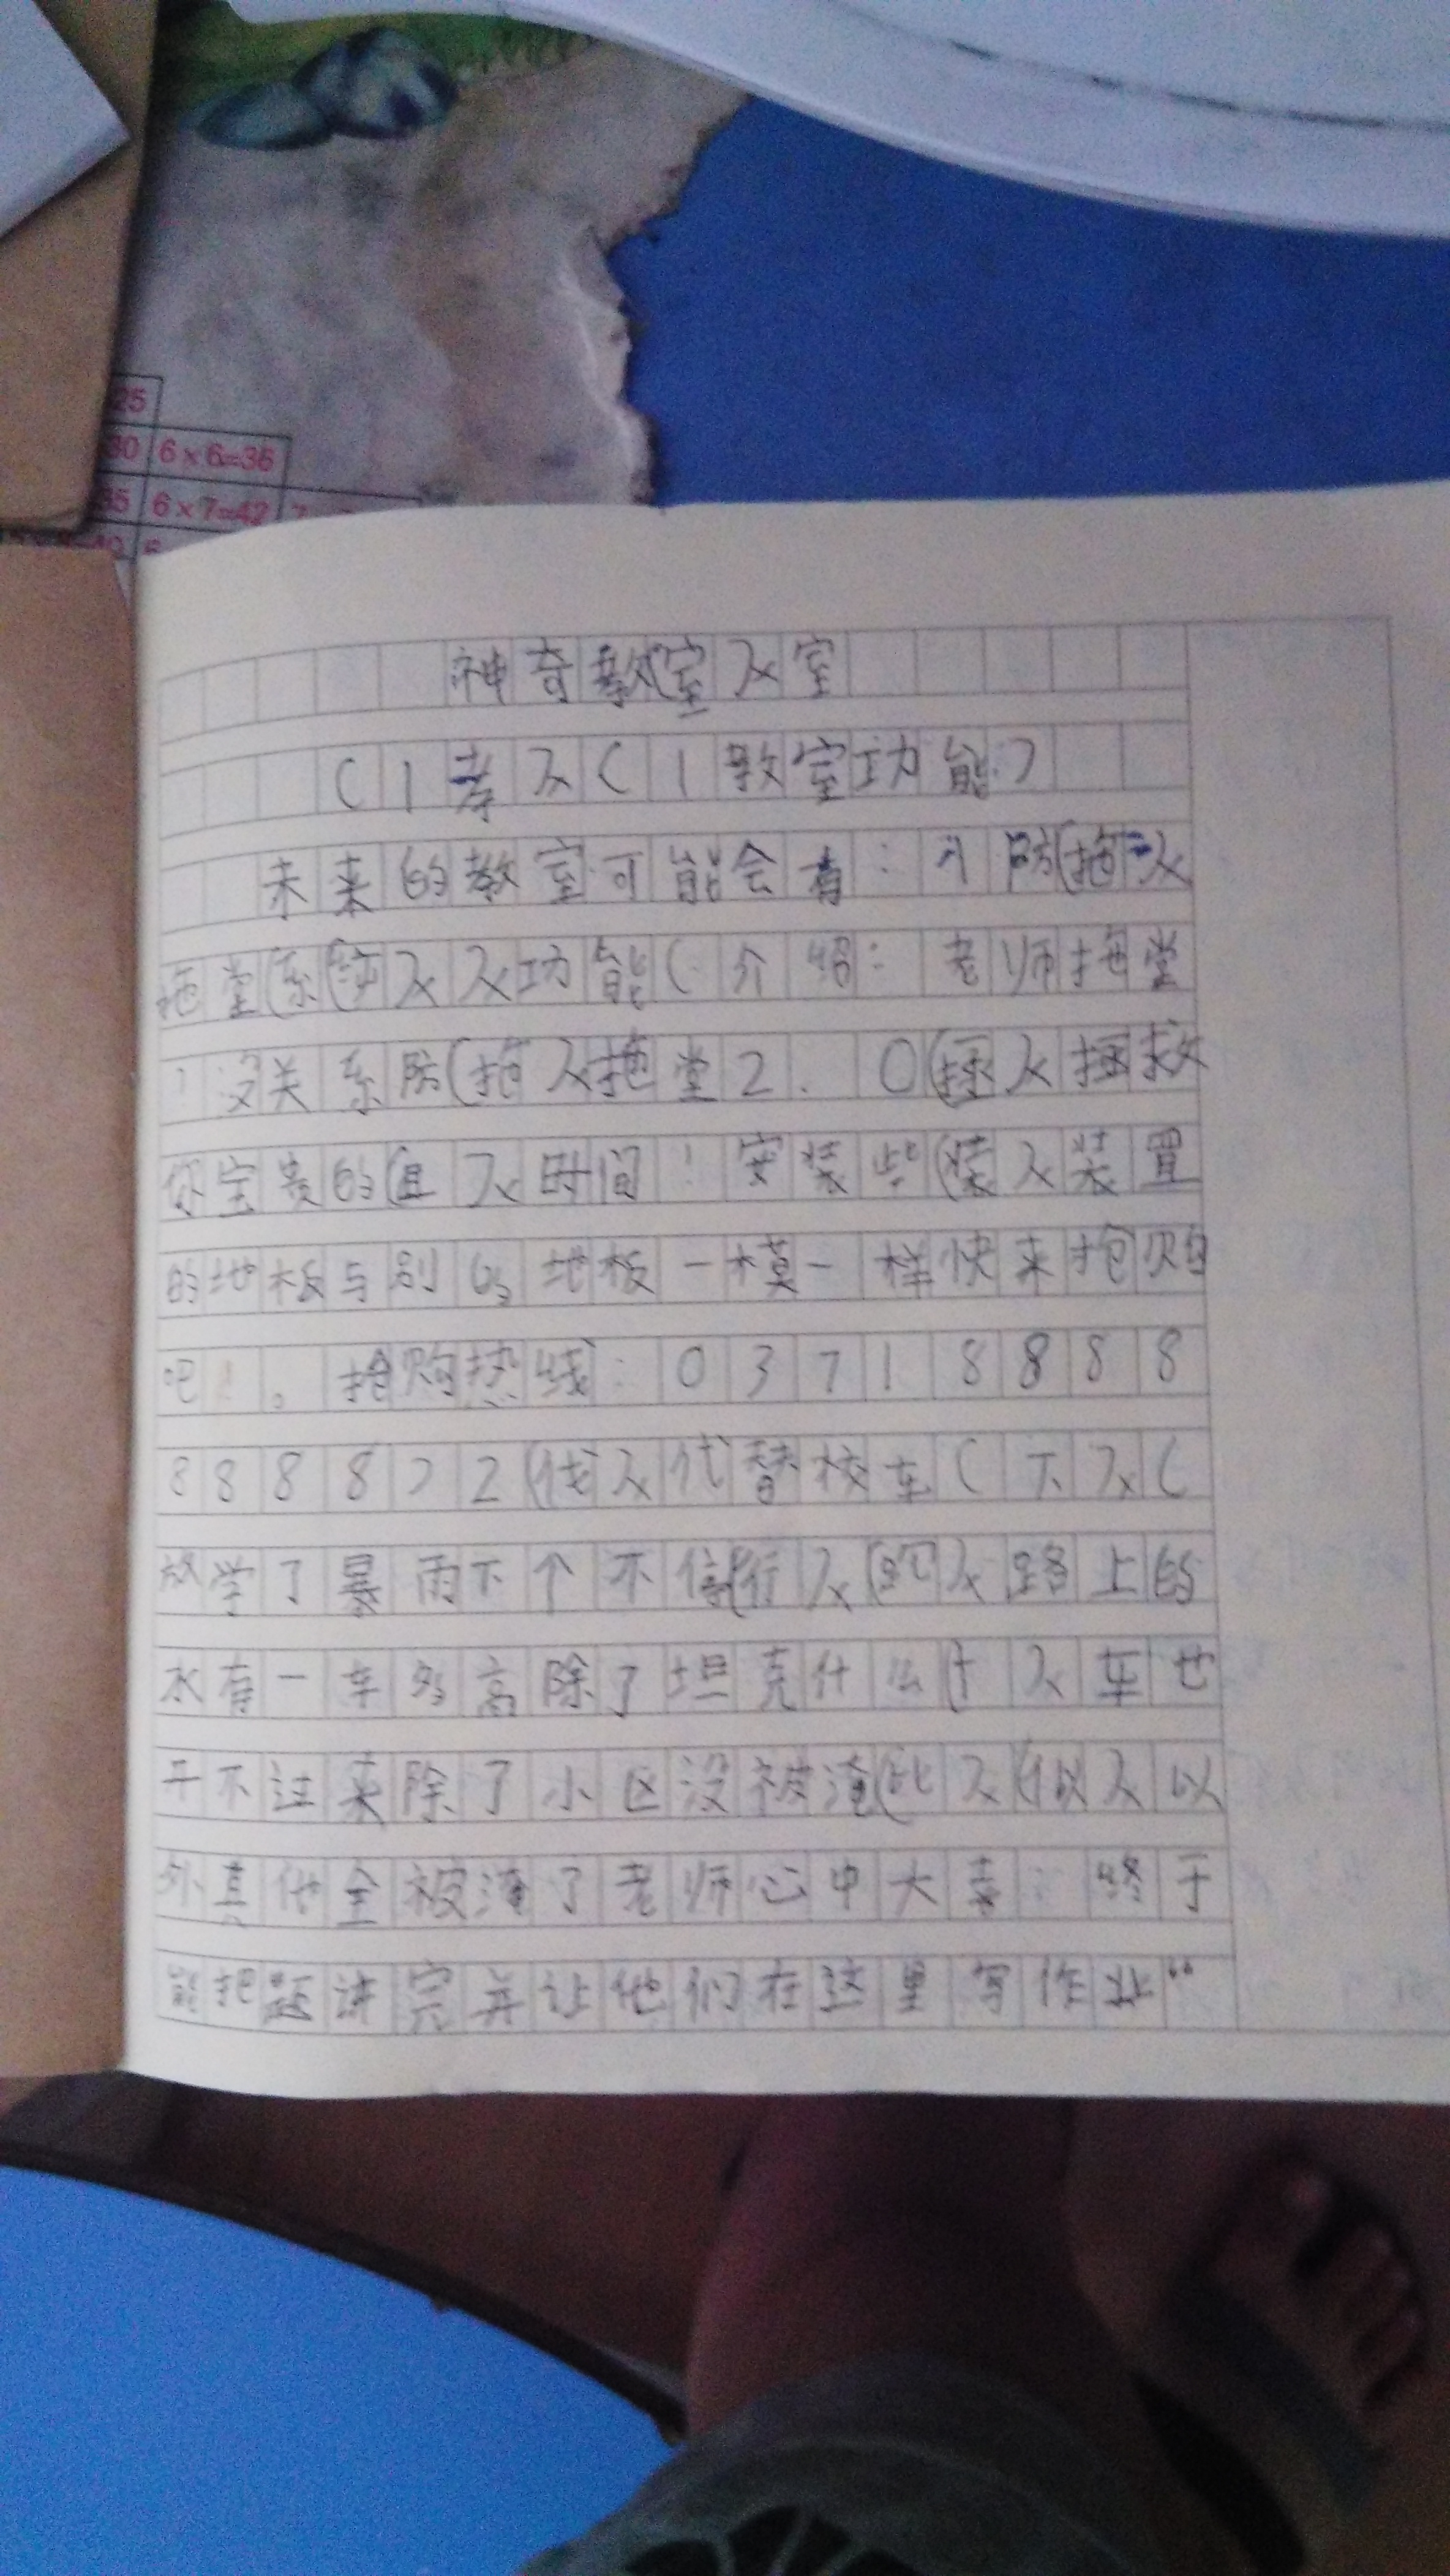 25
30 6×6=36
35 6×7=42 7
神奇教室室
(1 教室功能)
未来的教室可能会有：防拖
拖堂系功能(介绍：老师拖堂
！没关系防拖堂2.0拯救
你宝贵的时间！安装些装置
的地板与别的地板一模一样快来抢购
吧。抢购热线：0371 8888
8888 2代替校车(
放学了暴雨下个不停路上的
水有一车多高除了坦克什么车也
开不过来除了小区没被淹以
外其他全被淹了老师心中大喜：终于
能把题讲完并让他们在这里写作业“